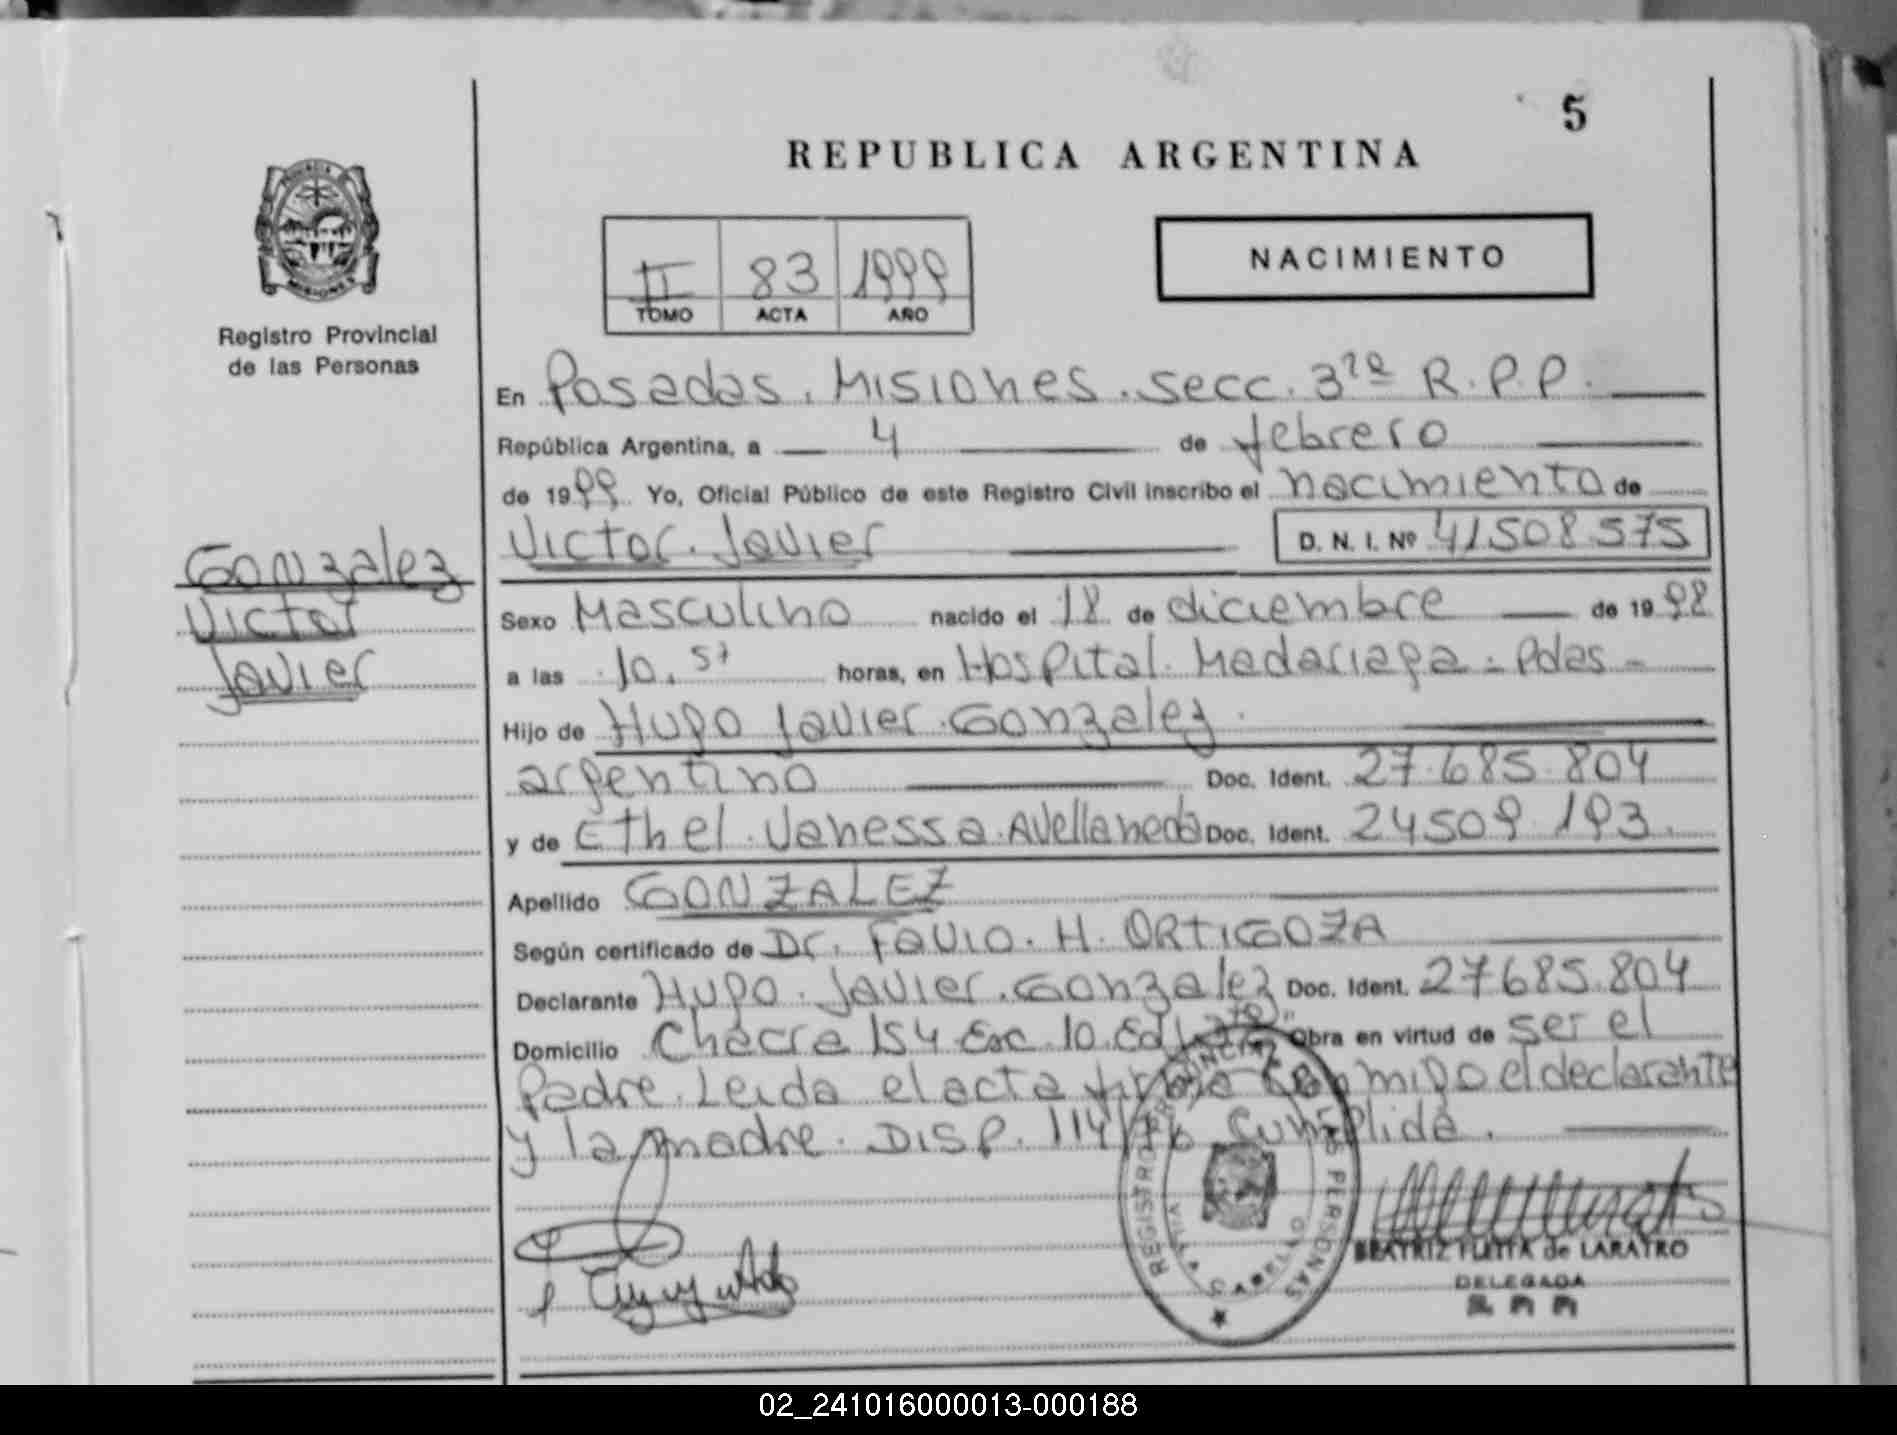 5
REPUBLICA ARGENTINA
PROVINCIA DE
MISIONES
Registro Provincial
de las Personas
II 83 1999
TOMO ACTA AÑO
NACIMIENTO
En Posadas. Misiones. secc. 3ra R.P.P.
República Argentina, a 4 de febrero
de 1999 Yo, Oficial Público de este Registro Civil inscribo el nacimiento de
Victor. Javier D. N. I. Nº 41.508.575
Gonzalez
Victor
Javier
Sexo Masculino nacido el 18 de diciembre de 1998
a las 10.57 horas, en Hospital. Madariaga - Pdas -
Hijo de Hugo Javier. Gonzalez.
argentino Doc. Ident. 27.685.804
y de Ethel. Vanessa. Avellaneda Doc. Ident. 24509.193.
Apellido GONZALEZ
Según certificado de Dr. Favio. H. ORTIGOZA
Declarante Hugo. Javier. Gonzalez Doc. Ident. 27685.804
Domicilio Chacra 154 Esc 10. Obra en virtud de ser el
Padre. Leida el acta conmigo el declarante
y la madre. DISP. 114/76 Cumplida.
REGISTRO PROVINCIAL DE LAS PERSONAS
BEATRIZ FLEITA de LARATRO
DELEGADA
02_241016000013-000188